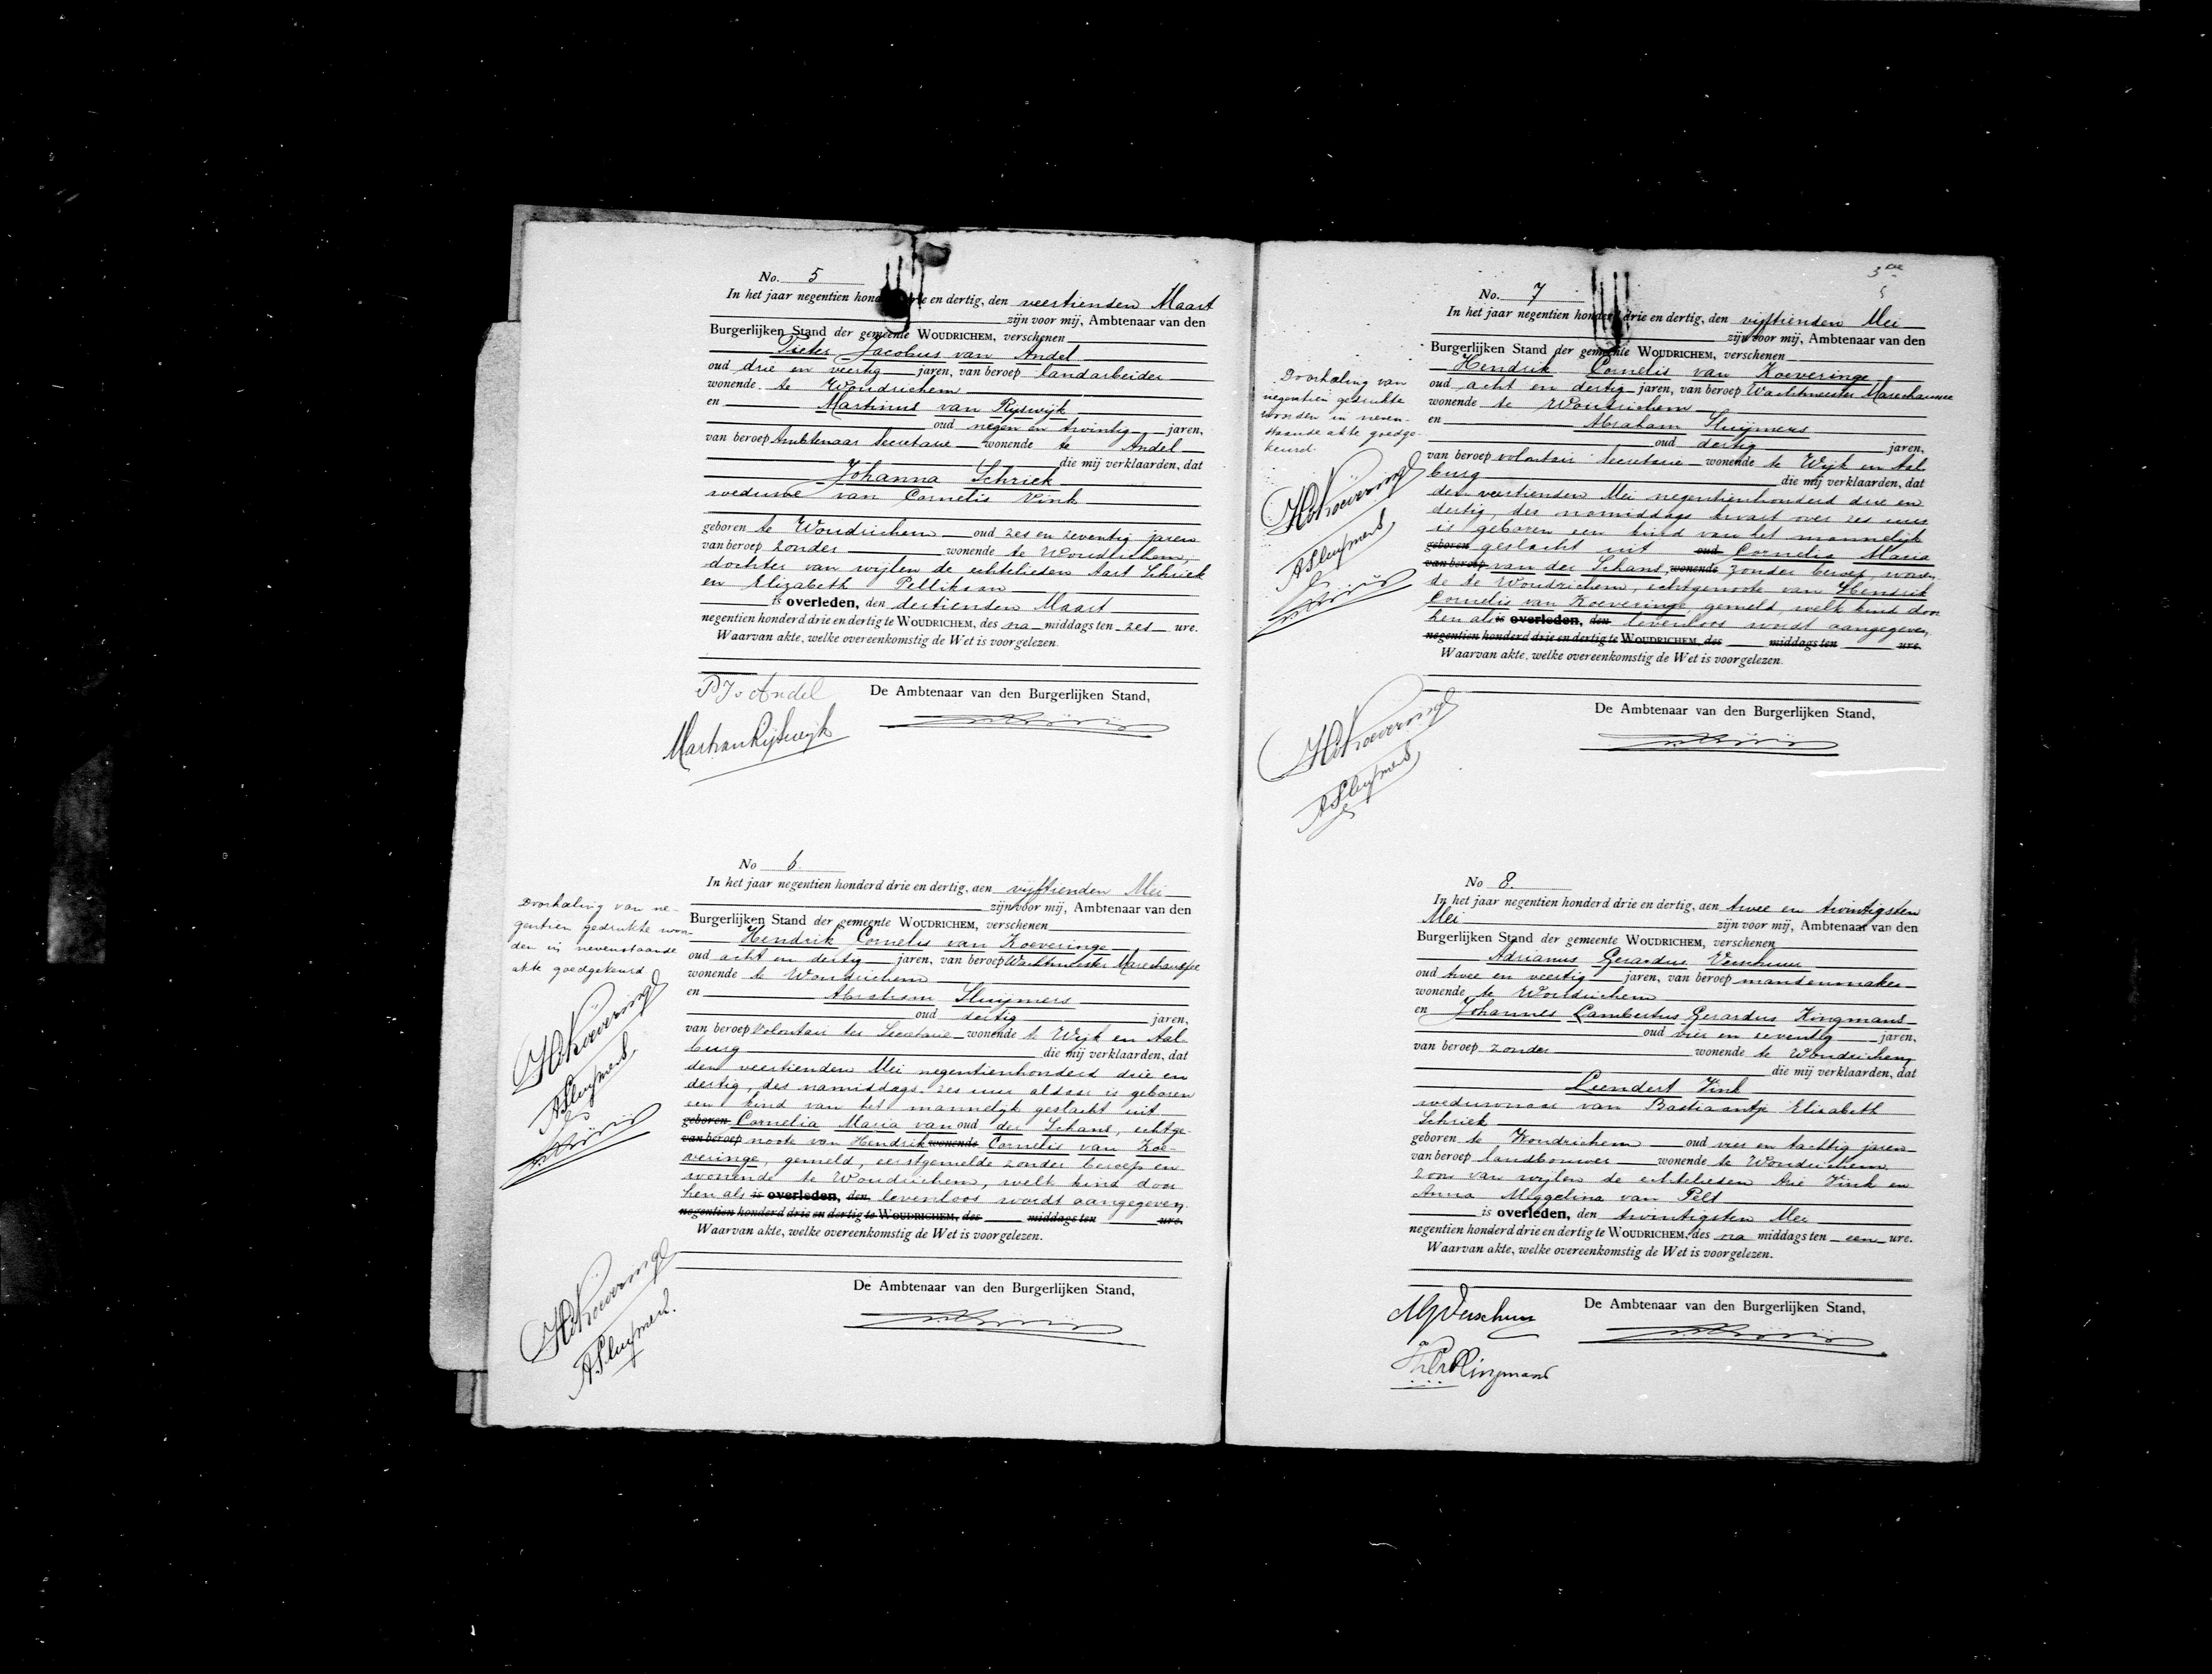 No. 5
In het jaar negentien hond drie en dertig, den veertienden Maart
zijn voor mij, Ambtenaar van den
Burgerlijken Stand der gemeente WOUDRICHEM, verschenen
Pieter Jacobus van Andel
oud drie en veertig jaren, van beroep landarbeider
wonende te Woudrichem
en Martinus van Rijswijk
oud negen en twintig jaren,
van beroep Ambtenaar Secretarie wonende te Andel
die mij verklaarden, dat
Johanna Schriek
weduwe van Cornelis Vink
geboren te Woudrichem oud zes en zeventig jaren
van beroep zonder wonende te Woudrichem,
dochter van wijlen de echtelieden Aart Schriek
en Elizabeth Pellikaan
is overleden, den dertienden Maart
negentien honderd drie en dertig te WOUDRICHEM, des na middags ten zes ure.
Waarvan akte, welke overeenkomstig de Wet is voorgelezen.
De Ambtenaar van den Burgerlijken Stand,
PJv Andel
MartvanRijswijk
No 6
In het jaar negentien honderd drie en dertig, den vijftienden Mei
zijn voor mij, Ambtenaar van den
Burgerlijken Stand der gemeente WOUDRICHEM, verschenen
Hendrik Cornelis van Koeveringe
oud acht en dertig jaren, van beroep Wachtmeester Marechaussee
wonende te Woudrichem
en Abraham Sluijmers
oud dertig jaren,
van beroep Volontair ter Secretarie wonende te Wijk en Aal-
burg die mij verklaarden, dat
den veertienden Mei negentienhonderd drie en
dertig, des namiddags zes uur aldaar is geboren
een kind van het mannelijk geslacht uit
geboren Cornelia Maria van oud der Schans, echtge-
van beroep noote van Hendrik wonende Cornelis van Koe-
veringe, gemeld, eerstgemelde zonder beroep en
wonende te Woudrichem, welk kind door
hen als is overleden, den levenloos wordt aangegeven.
negentien honderd drie en dertig te WOUDRICHEM, des middags ten ure.
Waarvan akte, welke overeenkomstig de Wet is voorgelezen.
De Ambtenaar van den Burgerlijken Stand,
Doorhaling van ne-
gentien gedrukte woor-
den in nevenstaande
akte goedgekeurd
HCvKoeveringe
ASluymers
HCvKoeveringe
ASluymers.
3de
5
No. 7
In het jaar negentien honderd drie en dertig, den vijftienden Mei
zijn voor mij, Ambtenaar van den
Burgerlijken Stand der gemeente WOUDRICHEM, verschenen
Hendrik Cornelis van Koeveringe
oud acht en dertig jaren, van beroep Wachtmeester Marechaussee
wonende te Woudrichem
en Abraham Sluijmers
oud dertig jaren,
van beroep volontair Secretarie wonende te Wijk en Aal-
burg die mij verklaarden, dat
den veertienden Mei negentienhonderd drie en
dertig, des namiddags kwart over zes uur
is geboren een kind van het mannelijk
geboren geslacht uit oud Cornelia Maria
van beroep van der Schans wonende zonder beroep, wonen-
de te Woudrichem, echtgenoote van Hendrik
Cornelis van Koeveringe, gemeld, welk kind door
hen als is overleden, den levenloos wordt aangegeven,
negentien honderd drie en dertig te WOUDRICHEM, des middags ten ure.
Waarvan akte, welke overeenkomstig de Wet is voorgelezen.
De Ambtenaar van den Burgerlijken Stand,
Doorhaling van
negentien gedrukte
woorden in neven-
staande akte goedge-
keurd.
HCvKoeveringe
ASluymers
HCvKoeveringe
ASluymers
No 8.
In het jaar negentien honderd drie en dertig, den twee en twintigsten
Mei zijn voor mij, Ambtenaar van den
Burgerlijken Stand der gemeente WOUDRICHEM, verschenen
Adrianus Gerardus Verschuur
oud twee en veertig jaren, van beroep mandenmaker
wonende te Woudrichem
en Johannes Lambertus Gerardus Kingmans
oud vier en zeventig jaren,
van beroep zonder wonende te Woudrichem
die mij verklaarden, dat
Leendert Vink
weduwnaar van Bastiaantje Elisabeth
Schriek
geboren te Woudrichem oud vier en tachtig jaren
van beroep landbouwer wonende te Woudrichem,
zoon van wijlen de echtelieden Arie Vink en
Anna Meggelina van Pelt
is overleden, den twintigsten Mei
negentien honderd drie en dertig te WOUDRICHEM, des na middags ten een ure.
Waarvan akte, welke overeenkomstig de Wet is voorgelezen.
De Ambtenaar van den Burgerlijken Stand,
AGVerschuur
Kingmans